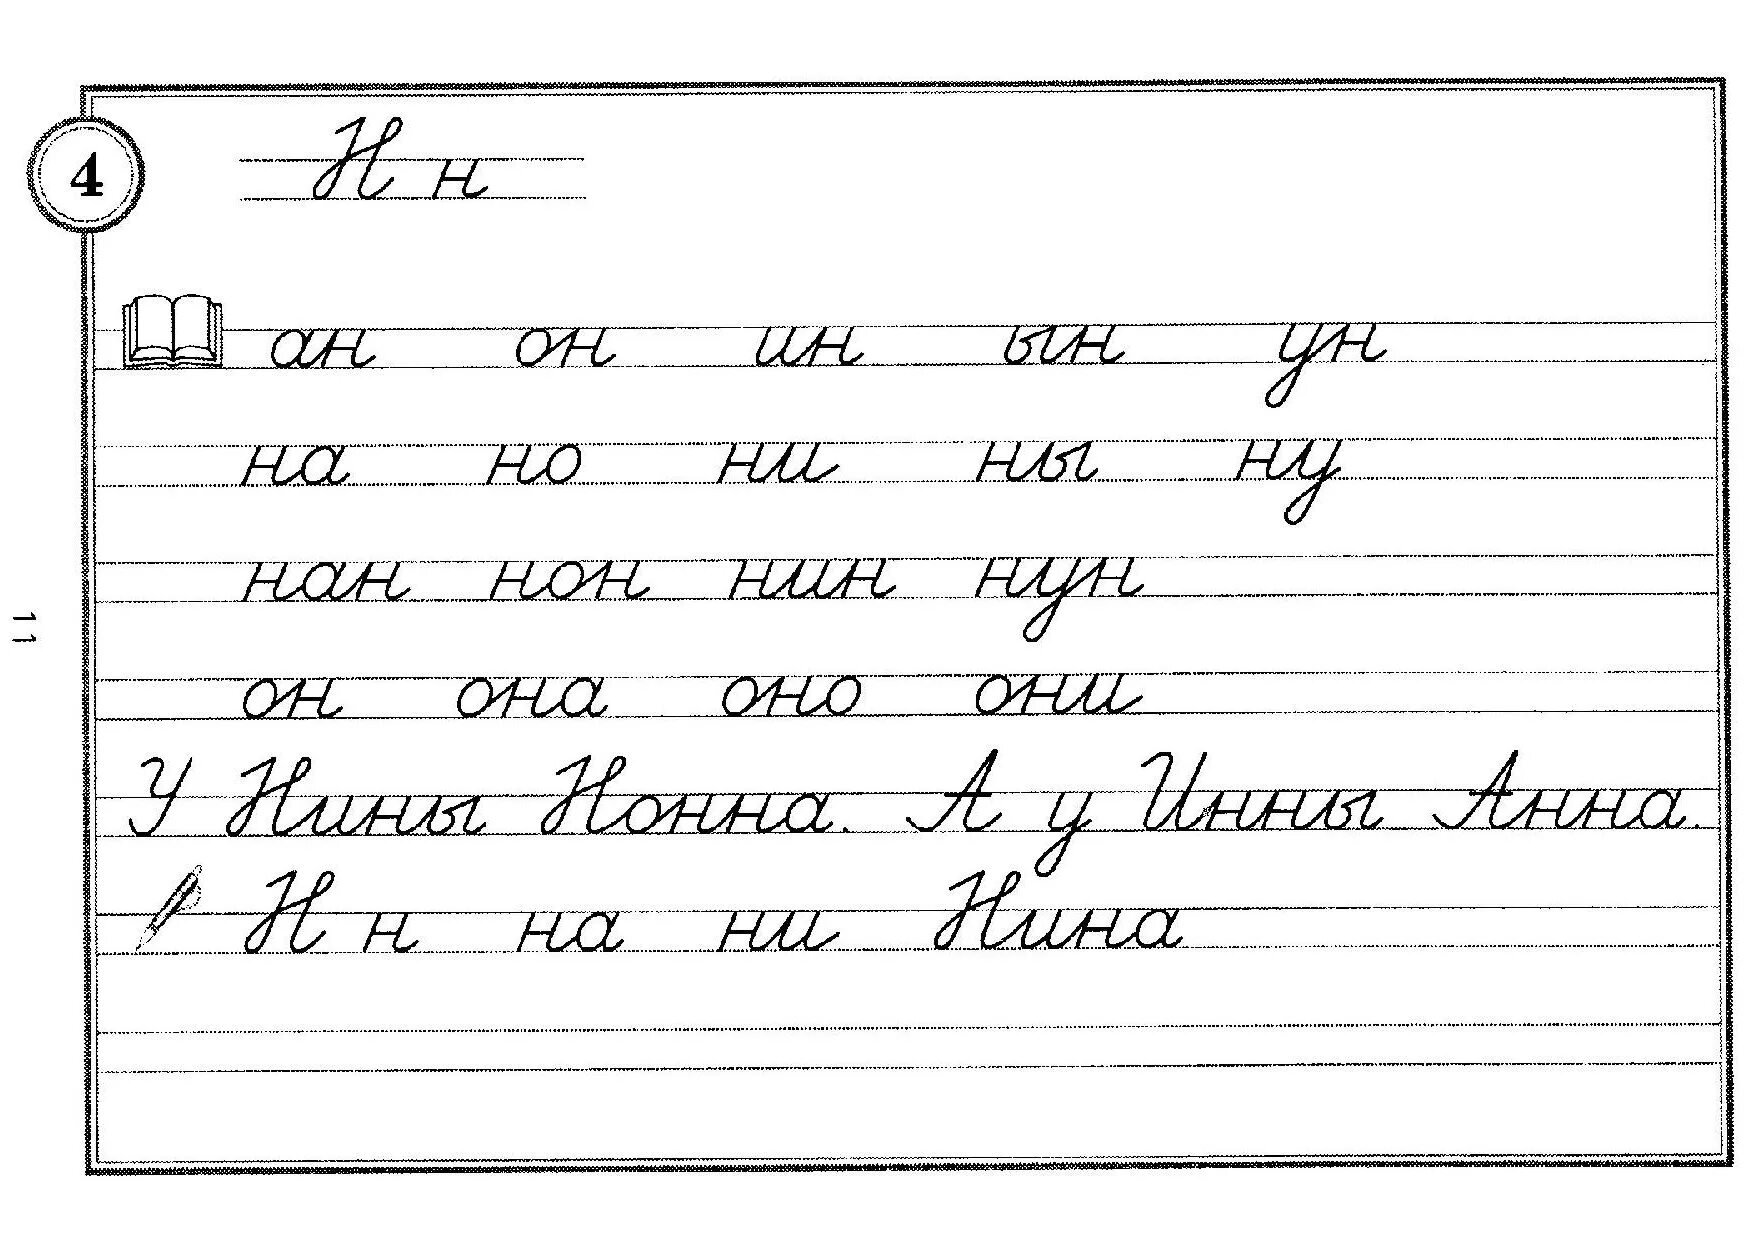 4
Н н
ан он ин ын ун
на но ни ны ну
нан нон нин нун
он она оно они
У Нины Нонна. А у Инны Анна.
Н н на ни Нина
11